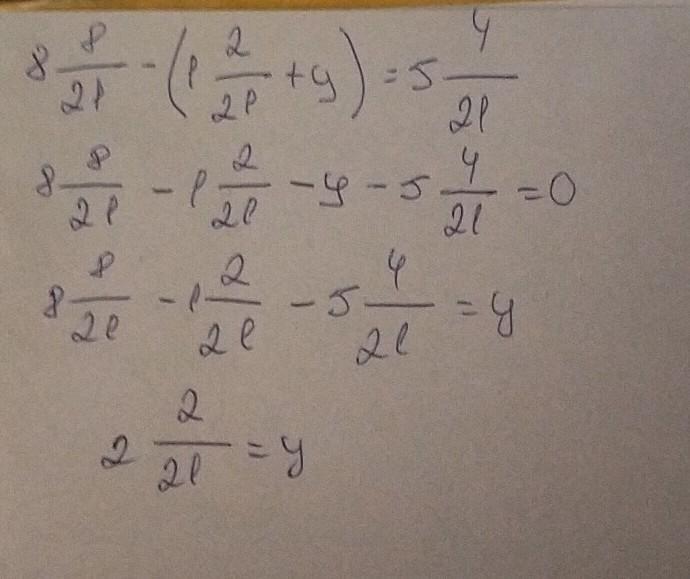 8 8/21 - (1 2/21 + y) = 5 4/21
8 8/21 - 1 2/21 - y - 5 4/21 = 0
8 8/21 - 1 2/21 - 5 4/21 = y
2 2/21 = y